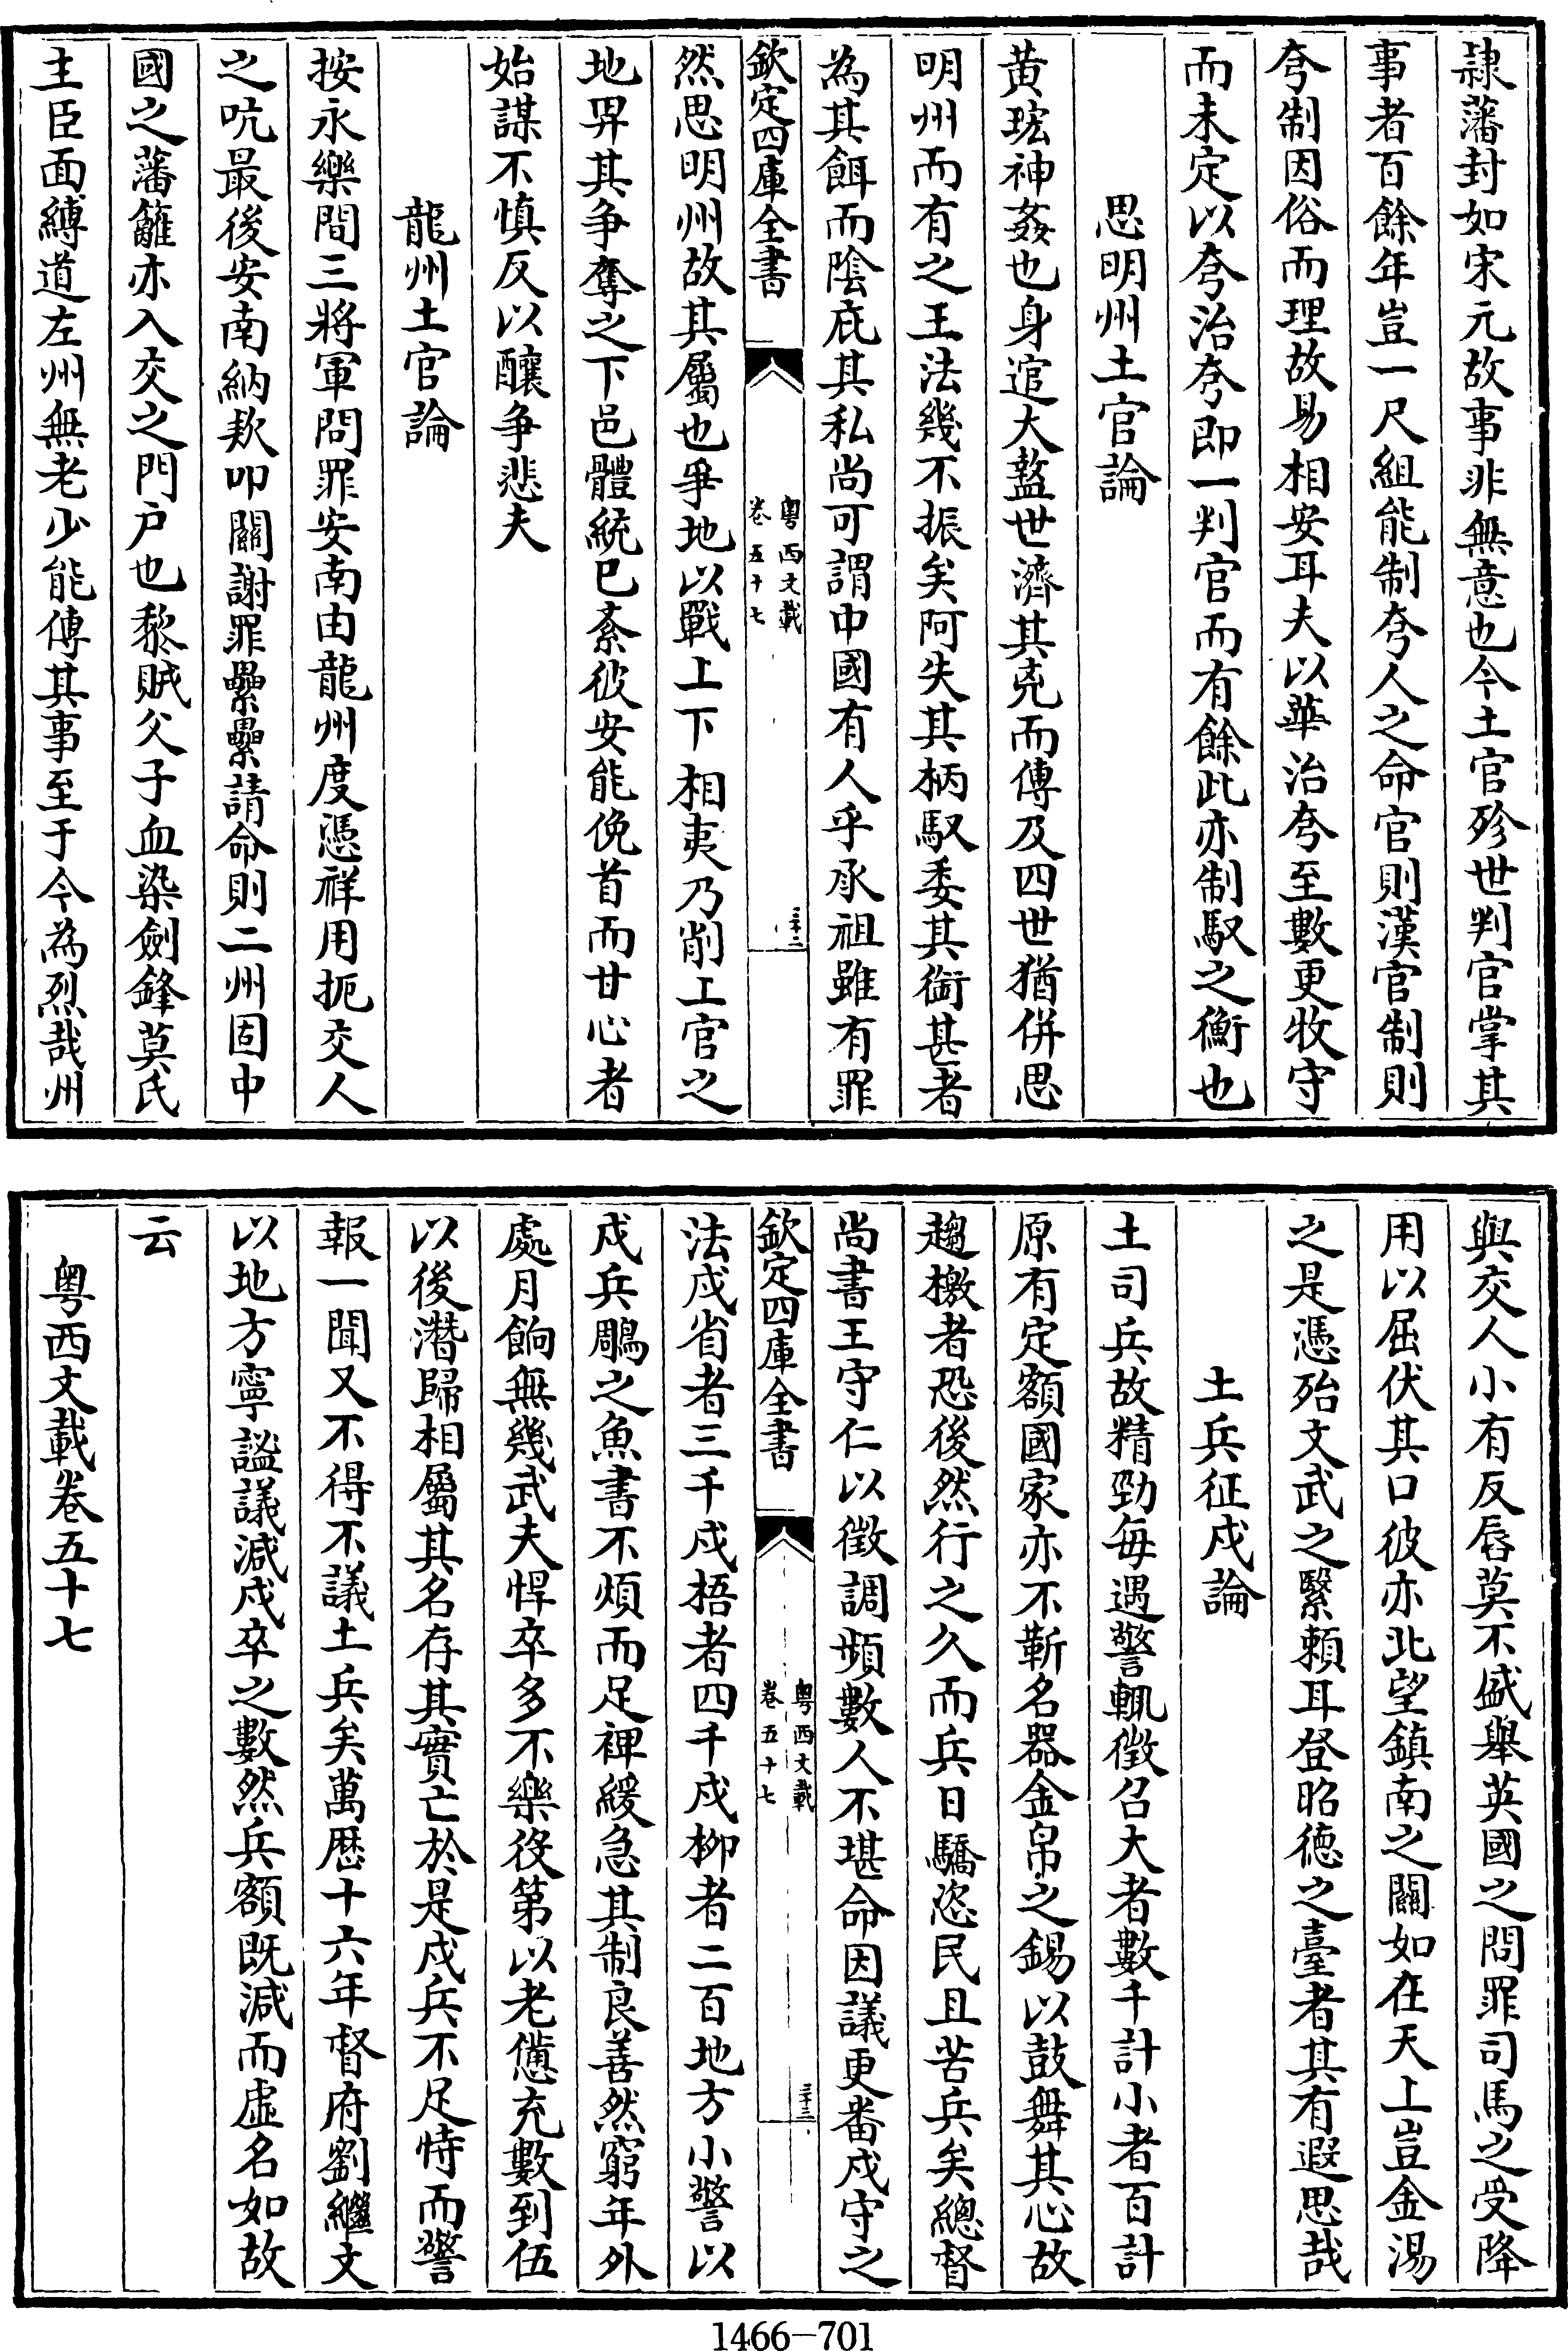 隷藩封如宋元故事非無意也今土官殄世判官掌其
事者百餘年豈一尺組能制夸人之命官則漢官制則
夸制因俗而理故易相安耳夫以華治夸至數更牧守
而未定以夸治夸即一判官而有餘此亦制馭之衡也
思明州土官論
黄珫神姦也身逭大盭世濟其兇而傳及四世猶併思
明州而有之王法幾不振矣阿失其柄馭委其銜甚者
為其餌而陰庇其私尚可謂中國有人乎承祖雖有罪
欽定四庫全書
粤西文載
卷五十七
三十二
然思明州故其屬也爭地以戰上下相夷乃削工官之
地畀其争奪之下邑體統已紊彼安能俛首而甘心者
始謀不慎反以釀争悲夫
龍州土官論
按永樂間三將軍問罪安南由龍州度憑祥用扼交人
之吭最後安南納欵叩關謝罪纍纍請命則二州固中
國之藩籬亦入交之門户也黎賊父子血染劍鋒莫氏
主臣面縛道左州無老少能傳其事至于今為烈哉州
與交人小有反唇莫不盛舉英國之問罪司馬之受降
用以屈伏其口彼亦北望鎮南之關如在天上豈金湯
之是憑殆文武之之緊賴耳登昭徳之臺者其有遐思哉
土兵征戍論
土司兵故精勁每遇警輒徴召大者數千計小者百計
原有定額國家亦不靳名器金帛之錫以鼓舞其心故
趨檄者恐後然行之久而兵日驕恣民且苦兵矣總督
尚書王守仁以徴調頻數人不堪命因議更番戍守之
欽定四庫全書
粤西文載
卷五十七
三十三
法戍省者三千戍梧者四千戍柳者二百地方小警以
戍兵鵰之魚書不煩而足裨緩急其制良善然窮年外
處月餉無幾武夫悍卒多不樂役第以老憊充數到伍
以後潛歸相屬其名存其實亡於是戍兵不足恃而警
報一聞又不得不議土兵矣萬厯十六年督府劉繼文
以地方寧謐議減戍卒之數然兵額既減而虛名如故
云
粤西文載卷五十七
1466-701